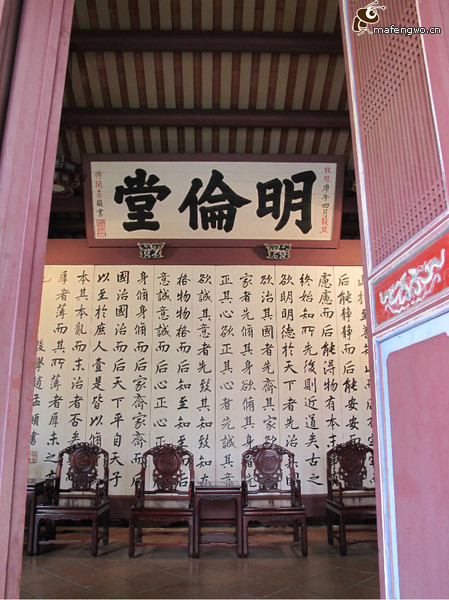 mafengwo.cn
明倫堂
庚午四月穀旦
於至善知止而
后能靜靜而后能安安而
慮慮而后能得物有本末
終始知所先後則近道矣古之
欲明明德於天下者先治其
欲治其國者先齊其家欲
家者先脩其身欲脩其身者先
正其心欲正其心者先誠其
欲誠其意者先致其知致知在
格物物格而后知至知至而
意誠意誠而后心正心正而后
身脩身脩而后家齊家齊而后
國治國治而后天下平自天子
以至於庶人壹是皆以脩
本其本亂而末治者否矣
厚者薄而其所薄者厚未之
也
後學趙孟頫書